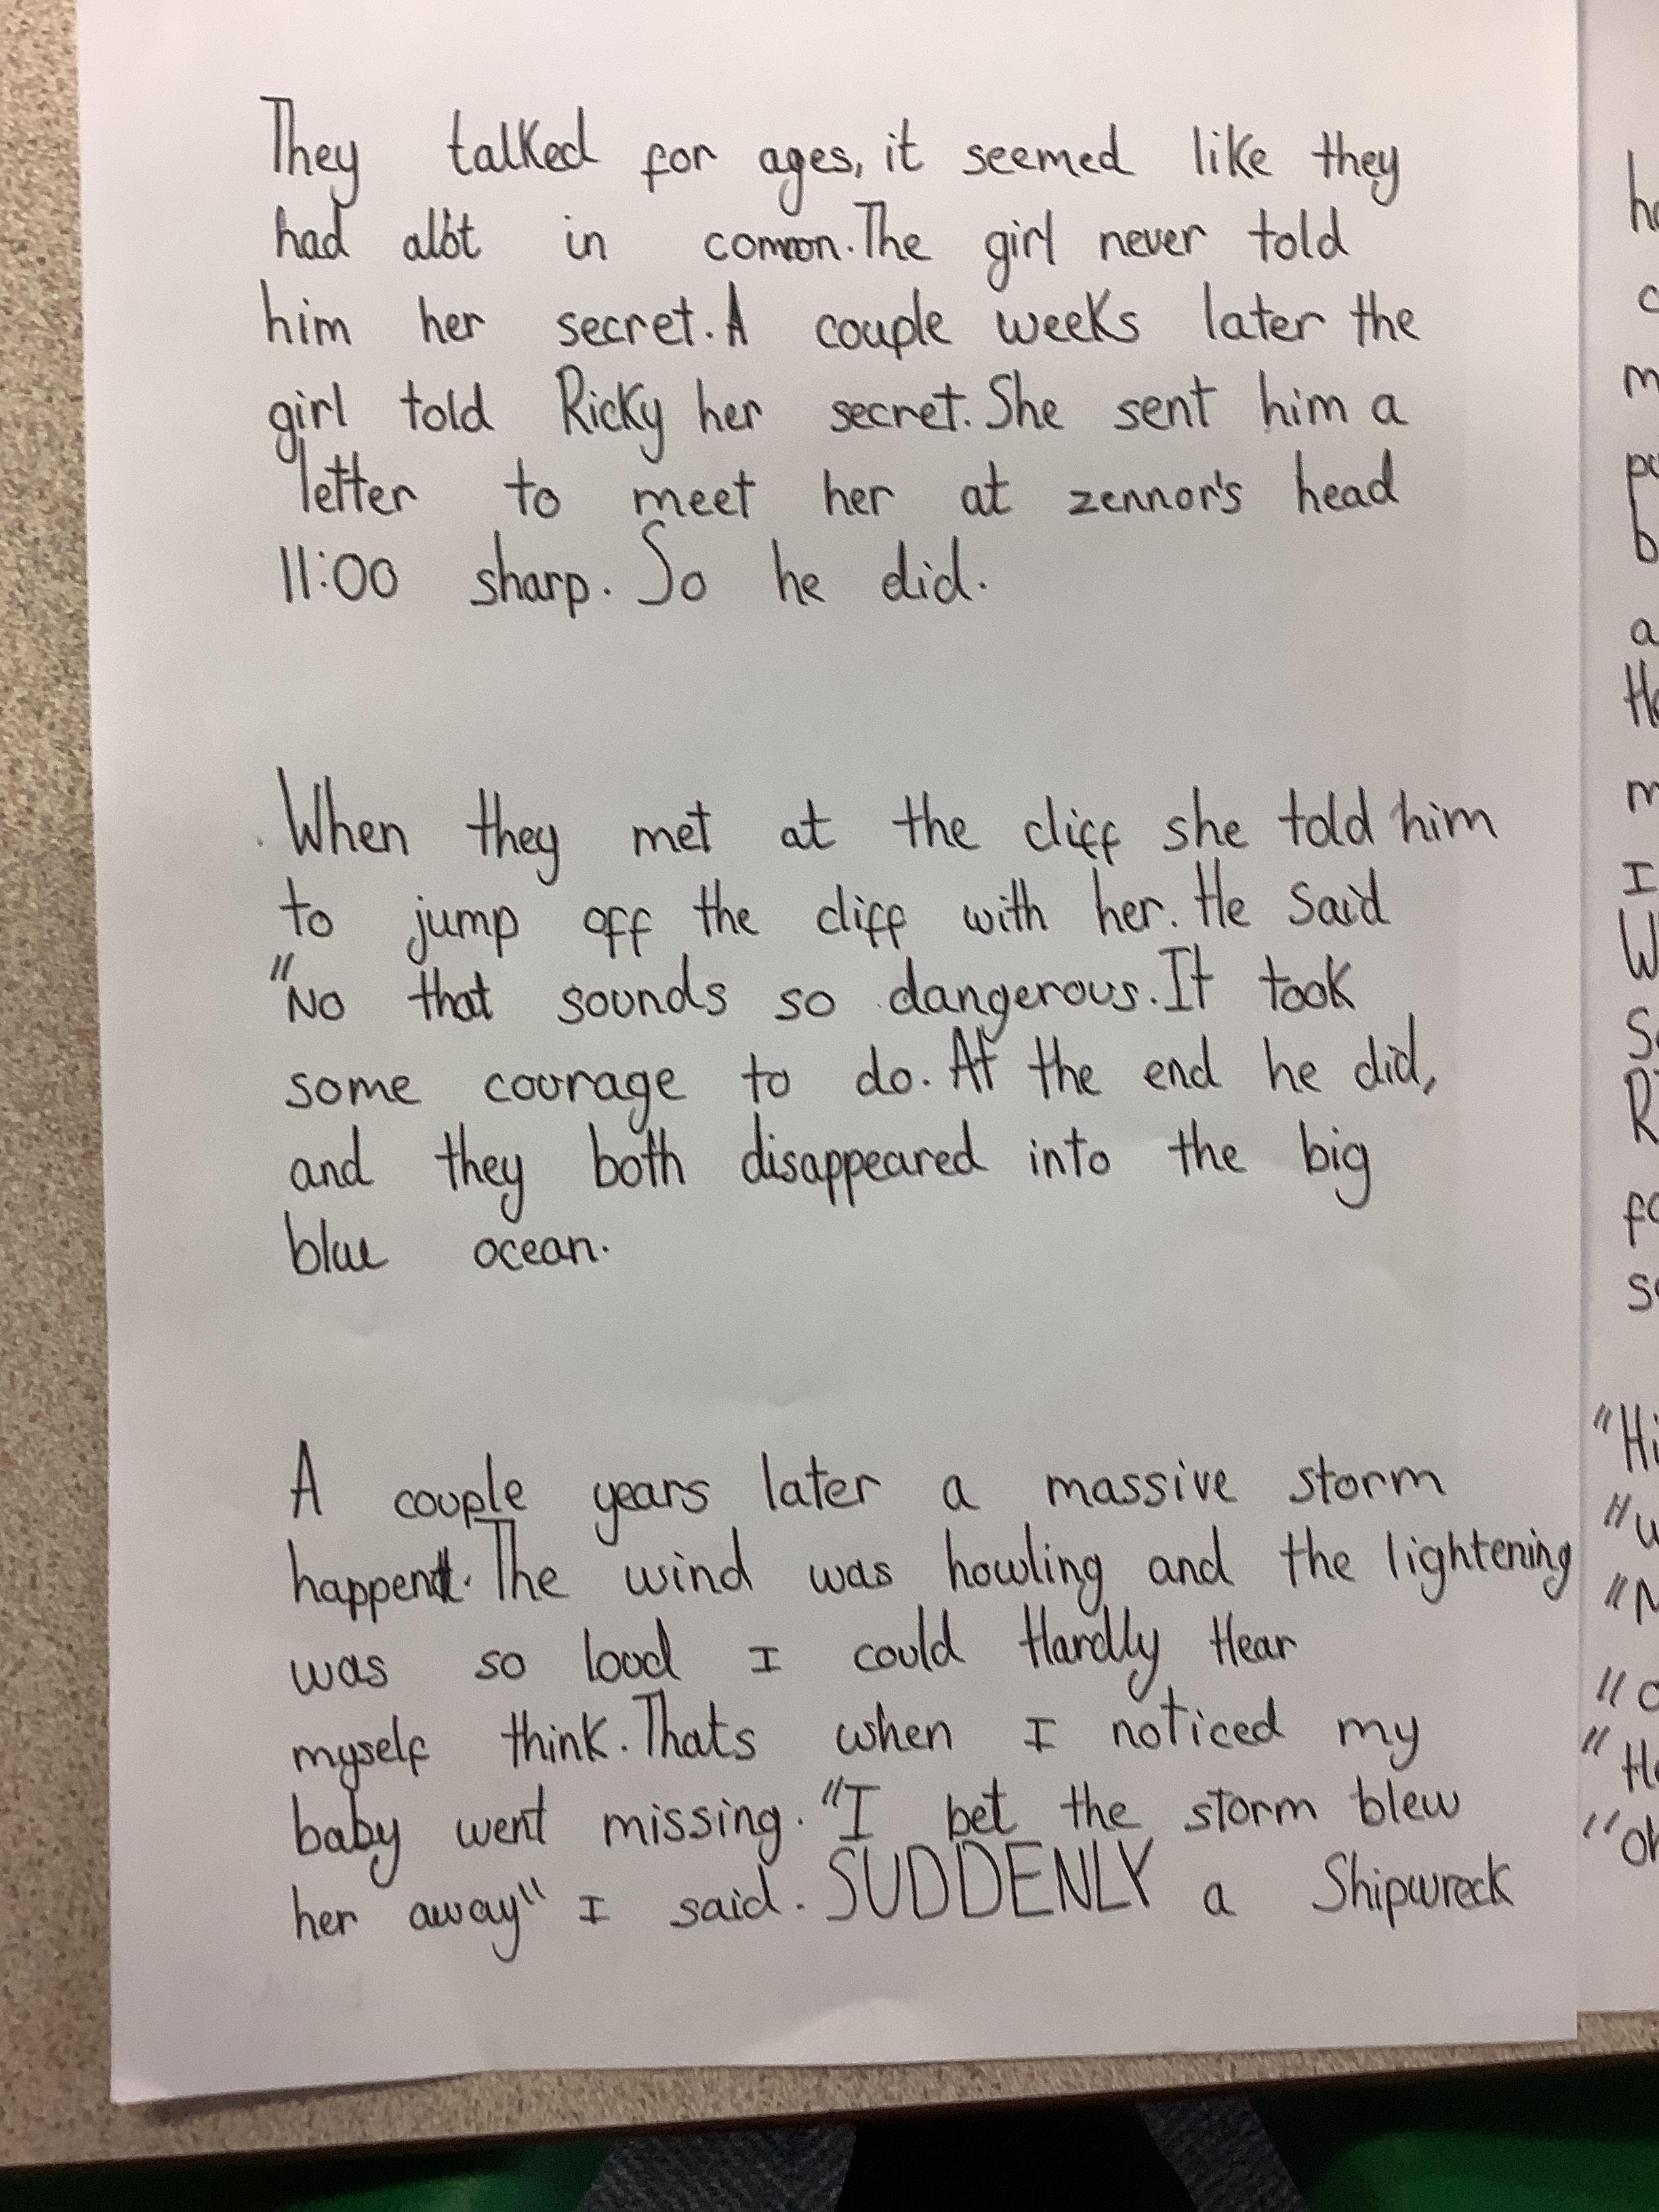 They talked for ages, it seemed like they
had alot in common. The girl never told
him her secret. A couple weeks later the
girl told Ricky her secret. She sent him a
letter to meet her at zennor's head
11:00 sharp. So he did.
When they met at the cliff she told him
to jump off the cliff with her. He Said
"No that sounds so dangerous. It took
some courage to do. At the end he did,
and they both disappeared into the big
blue ocean.
A couple years later a massive storm
happend. The wind was howling and the lightening
was so loud I could Hardly Hear
myself think. Thats when I noticed my
baby went missing. "I bet the storm blew
her away" I said. SUDDENLY a Shipwreck